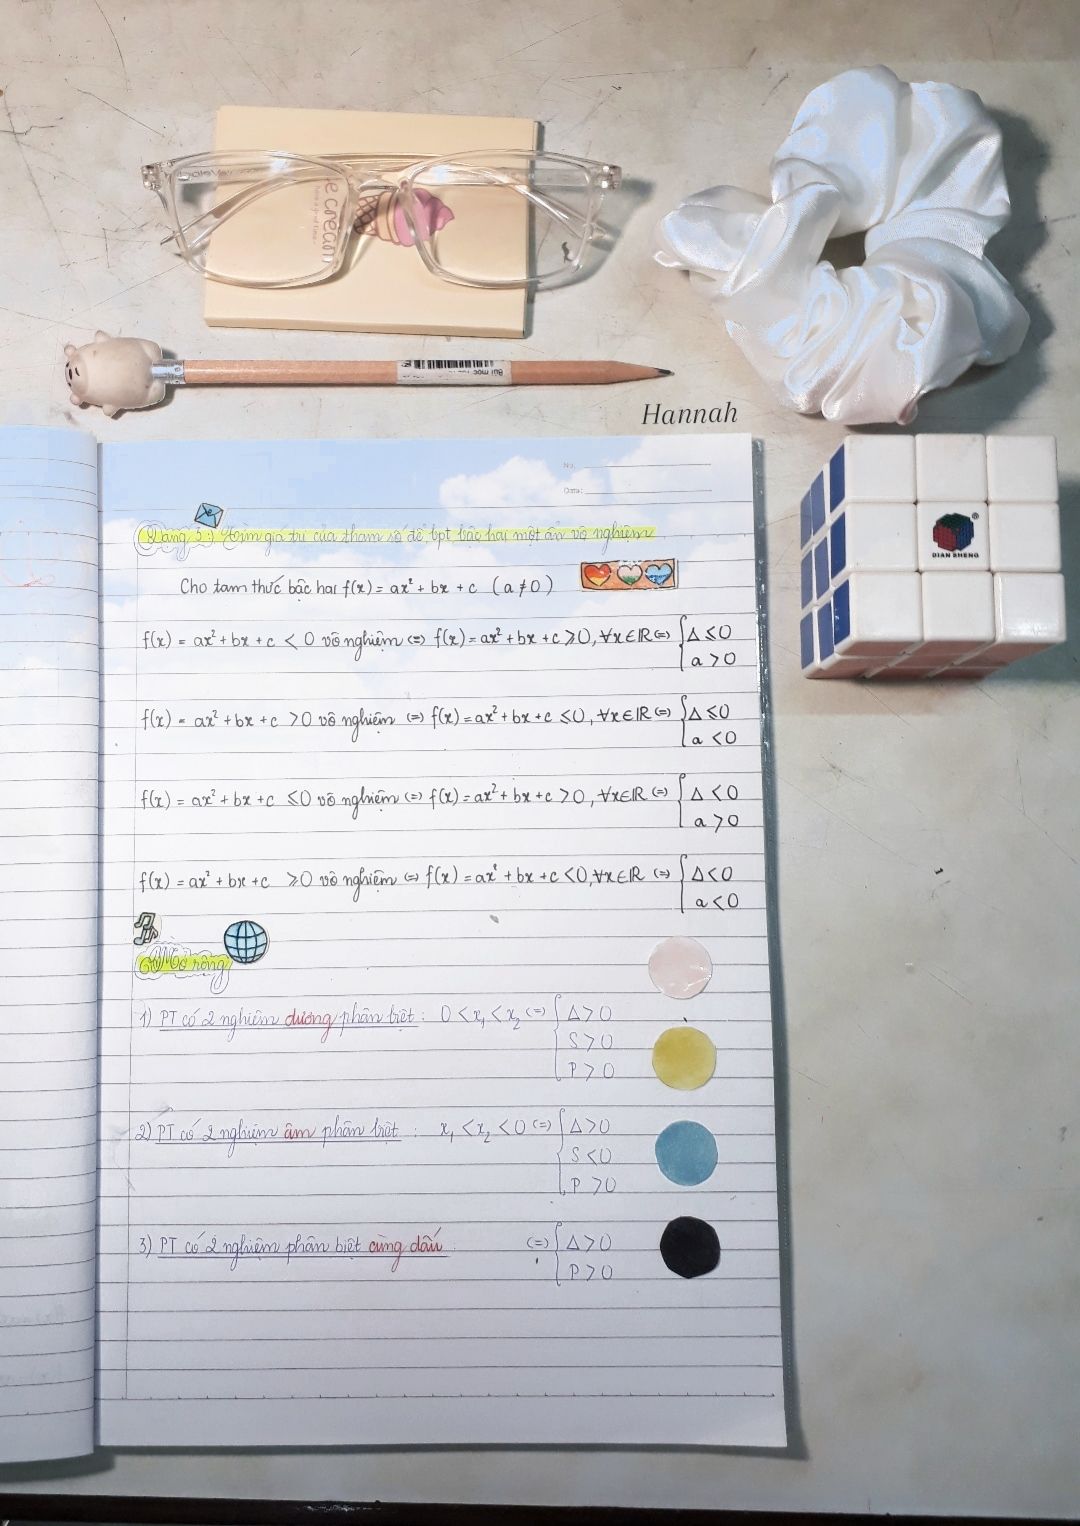 ice cream
Bùi mọc
Hannah
No.
Date:
Dạng 3: Tìm giá trị của tham số để bpt bậc hai một ẩn vô nghiệm
Cho tam thức bậc hai f(x) = ax² + bx + c (a ≠ 0)
f(x) = ax² + bx + c < 0 vô nghiệm (=) f(x) = ax² + bx + c ⩾ 0, ∀x∈ℝ (=) { Δ ⩽ 0
a > 0
DIAN SHENG
®
f(x) = ax² + bx + c > 0 vô nghiệm (=) f(x) = ax² + bx + c ⩽ 0, ∀x∈ℝ (=) { Δ ⩽ 0
a < 0
f(x) = ax² + bx + c ⩽ 0 vô nghiệm (=) f(x) = ax² + bx + c > 0, ∀x∈ℝ (=) { Δ < 0
a > 0
f(x) = ax² + bx + c ⩾ 0 vô nghiệm (=) f(x) = ax² + bx + c < 0, ∀x∈ℝ (=) { Δ < 0
a < 0
Mở rộng
1) PT có 2 nghiệm dương phân biệt : 0 < x₁ < x₂ (=) { Δ > 0
S > 0
P > 0
2) PT có 2 nghiệm âm phân biệt : x₁ < x₂ < 0 (=) { Δ > 0
S < 0
P > 0
3) PT có 2 nghiệm phân biệt cùng dấu (=) { Δ > 0
P > 0